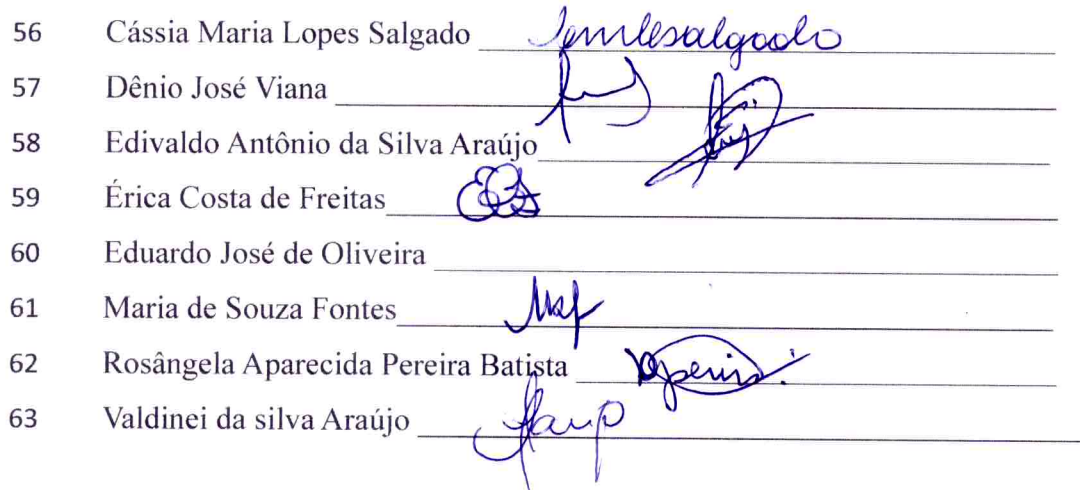 56 Cássia Maria Lopes Salgado
57 Dênio José Viana
58 Edivaldo Antônio da Silva Araújo
59 Érica Costa de Freitas
60 Eduardo José de Oliveira
61 Maria de Souza Fontes
62 Rosângela Aparecida Pereira Batista
63 Valdinei da silva Araújo